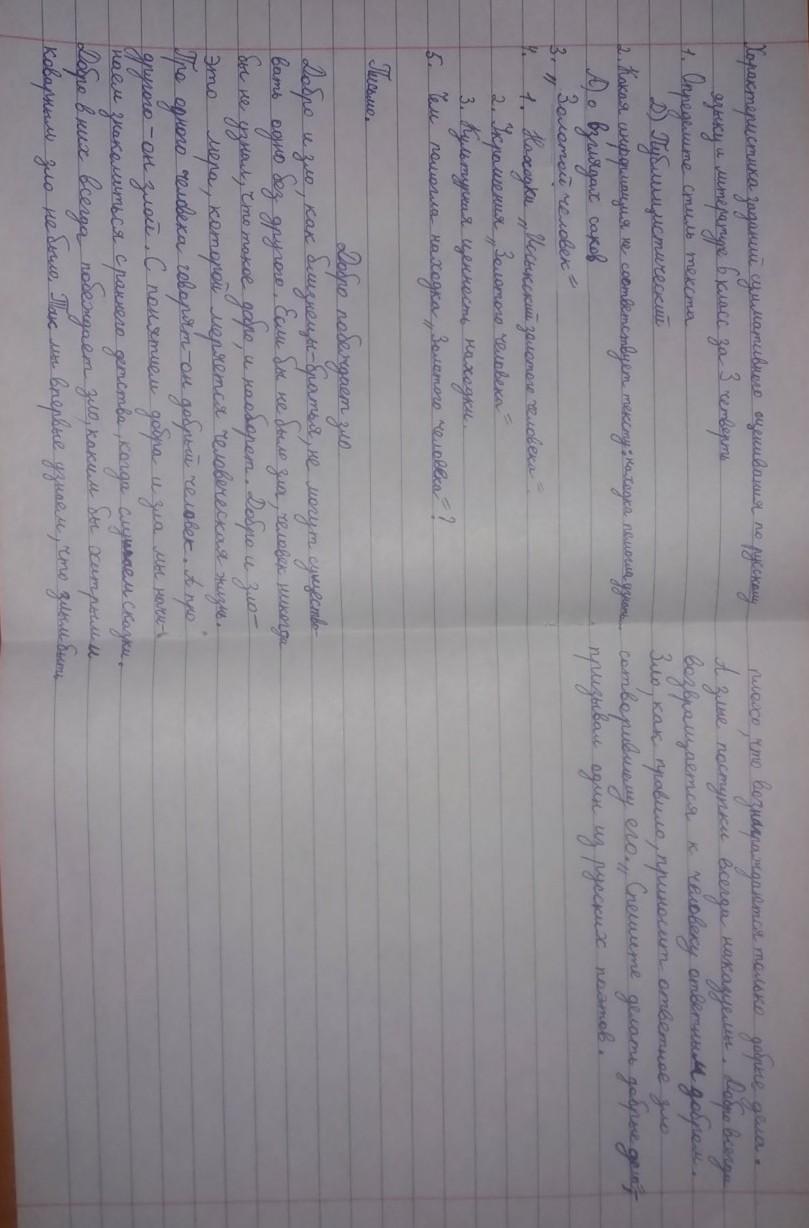 Характеристика заданий суммативного оценивания по русскому
языку и литературе 6 класс за 3 четверть
1. Определите стиль текста
D) Публицистический
2. Какая информация не соответствует тексту: находка помогла узнать.
A) о взглядах саков
3. „Золотой человек"
4. 1. Находка „Иссыкский золотого человека".
2. Украшения „Золотого человека"
3. Культурная ценность находки.
5. Чем помогла находка „Золотого человека"?
Письмо.
Добро побеждает зло
Добро и зло, как близнецы-братья, не могут существо-
вать одно без другого. Если бы не было зла, человек никогда
бы не узнал, что такое добро, и наоборот. Добро и зло-
это мера, которой меряется человеческая жизнь.
Про одного человека говорят-он добрый человек. А про
другого-он злой. С понятием добра и зла мы начи-
наем знакомиться с раннего детства, когда слушаем сказки.
Добро в них всегда побеждает зло, каким бы хитрым и
коварным зло не было. Так мы впервые узнаем, что злым быть
плохо, что вознаграждаются только добрые дела.
А злые поступки всегда наказуемы. Добро всегда
возвращается к человеку ответным добром.
Зло, как правило, приносит ответное зло
сотворившему его. „Спешите делать добрые дела"-
призывал один из русских поэтов.